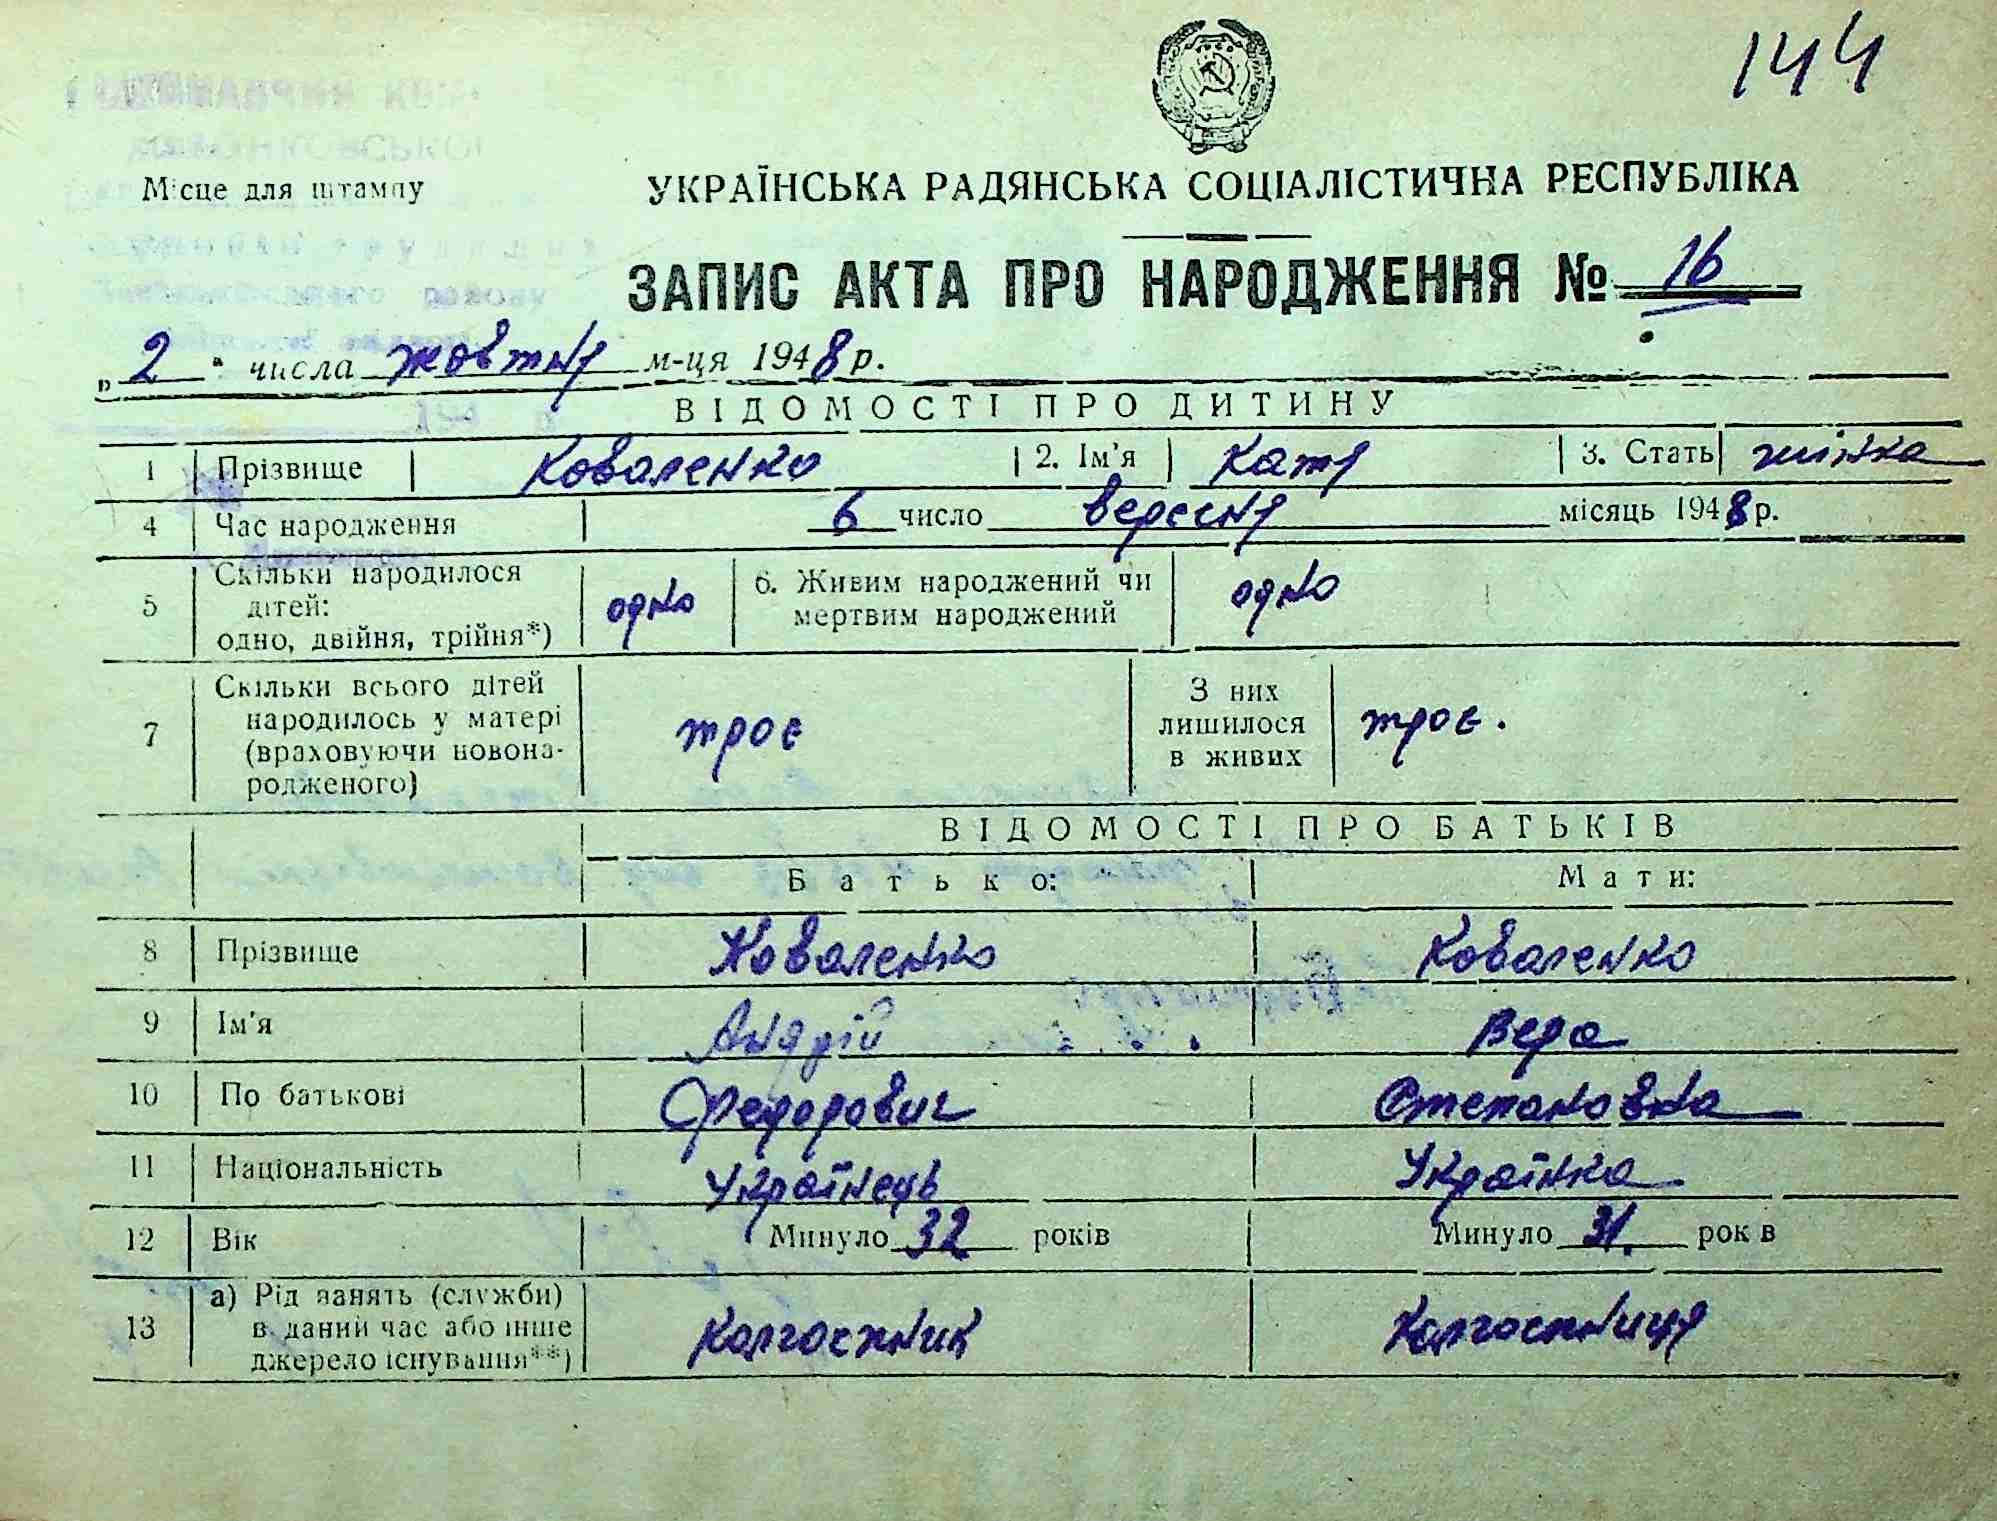 144
Місце для штампу
УКРАЇНСЬКА РАДЯНСЬКА СОЦІАЛІСТИЧНА РЕСПУБЛІКА
ЗАПИС АКТА ПРО НАРОДЖЕННЯ № 16
„2“ числа жовтня м-ця 1948 р.
ВІДОМОСТІ ПРО ДИТИНУ
1 Прізвище Коваленко 2. Ім'я Катя 3. Стать жінка
4 Час народження 6 число вересня місяць 1948 р.
5 Скільки народилося дітей: одно, двійня, трійня*) одно 6. Живим народжений чи мертвим народжений одно
7 Скільки всього дітей народилось у матері (враховуючи новонародженого) троє З них лишилося в живих троє.
ВІДОМОСТІ ПРО БАТЬКІВ
Батько: Мати:
8 Прізвище Коваленко Коваленко
9 Ім'я Андрій Вера
10 По батькові Федорович Степановна
11 Національність Українець Українка
12 Вік Минуло 32 років Минуло 31. рок в
13 а) Рід занять (служби) в даний час або інше джерело існування**) Колгоспник Колгоспниця